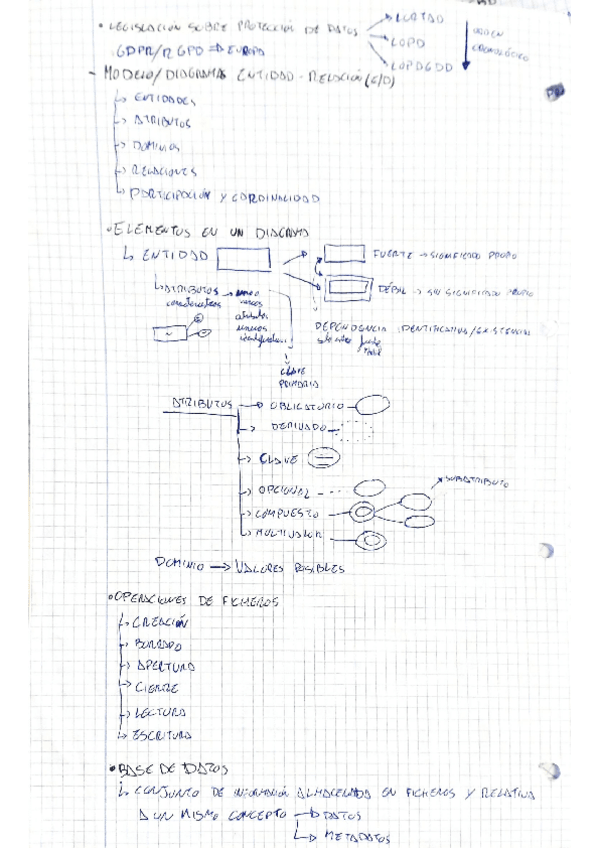 • LEGISLACIÓN SOBRE PROTECCIÓN DE DATOS → LORTAD
→ LOPD
→ LOPDGDD
ORDEN CRONOLÓGICO
GDPR/RGPD ⇒ EUROPA
- MODELO/DIAGRAMA ENTIDAD-RELACIÓN (E/D)
↳ ENTIDADES
↳ ATRIBUTOS
↳ DOMINIOS
↳ RELACIONES
↳ PARTICIPACIÓN Y CARDINALIDAD
• ELEMENTOS EN UN DIAGRAMA
↳ ENTIDAD
FUERTE → SIGNIFICADO PROPIO
DÉBIL → SIN SIGNIFICADO PROPIO
↳ ATRIBUTOS →
características
atributos
únicos
DEPENDENCIA IDENTIFICATIVA/EXISTENCIAL
CLAVE
PRIMARIA
ATRIBUTOS → OBLIGATORIO
→ DERIVADO
→ CLAVE
→ OPCIONAL
→ COMPUESTO
SUBATRIBUTO
→ MULTIVALOR
DOMINIO → VALORES POSIBLES
• OPERACIONES DE FICHEROS
↳ CREACIÓN
↳ BORRADO
↳ APERTURA
↳ CIERRE
↳ LECTURA
↳ ESCRITURA
• BASE DE DATOS
↳ CONJUNTO DE INFORMACIÓN ALMACENADA EN FICHEROS Y RELATIVA
A UN MISMO CONCEPTO → DATOS
↳ METADATOS